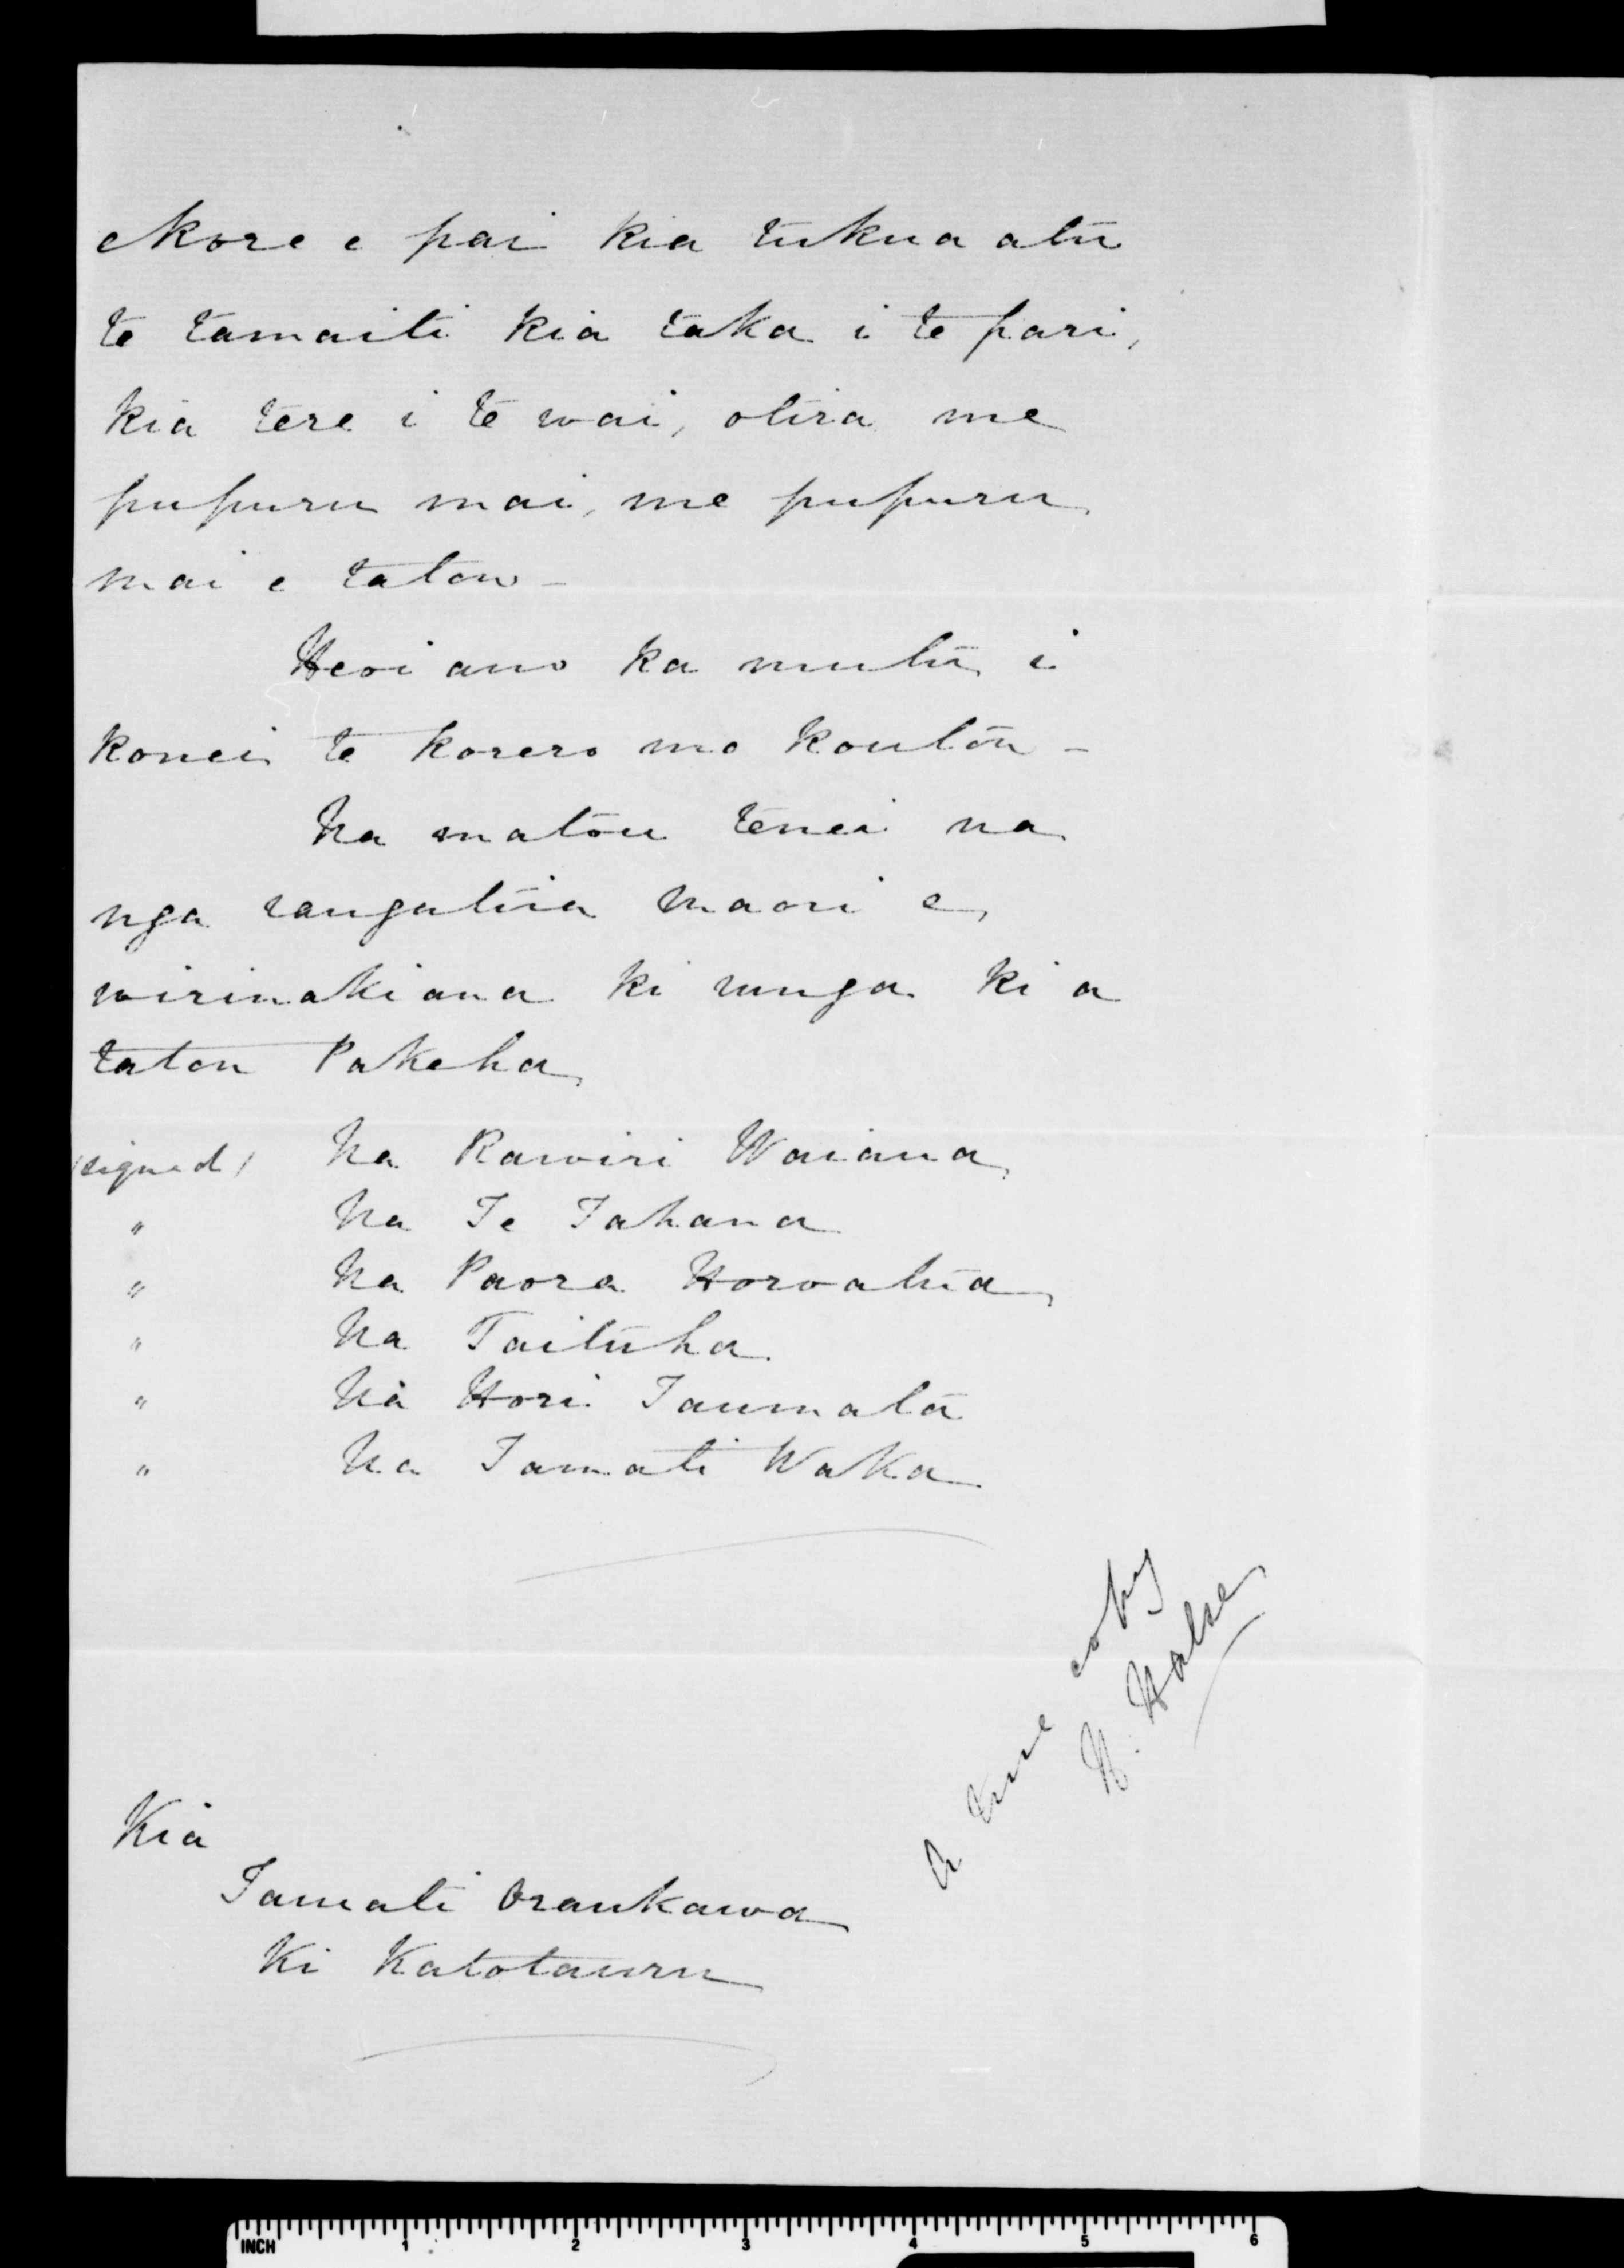 ekore e pai kia tukua atu
te tamaiti kia taka i te pari,
kia tere i te wai, otira me
pupuru mai, me pupuru
mai e tatou -
Heoi ano ka mutu i
konei te korero mo koutou -
Na matou tenei na
nga rangatira maori e
wirinakiana ki runga ki a
tatou Pakeha
(signed) Na Rawiri Waiaua
" Na Te Tahana
" Na Paora Horoatua
" Na Taituha
" Na Hori Taumata
" Na Tamati Waka
A true copy
H. Halse
Kia
Tamati Oraukawa
Ki Katotauru
INCH 1 2 3 4 5 6